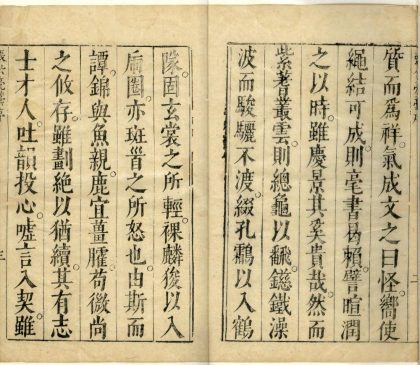 質而為祥氣成文之曰怪嚮使
繩結可成則毫書曷賴譬暄潤
之以時雖慶景其奚貴哉然而
紫著叢雲則總龜以飜鎡鐵澡
波而駿驪不渡綴孔鸘以入鶴
隊固玄裳之所輕裸麟後以入
廟圈亦斑晉之所怒也由斯而
譚錦與魚親鹿宜薑臛苟微尚
之攸存雖劃絕以猶續其有志
士才人吐韻投心噓言入契雖
三